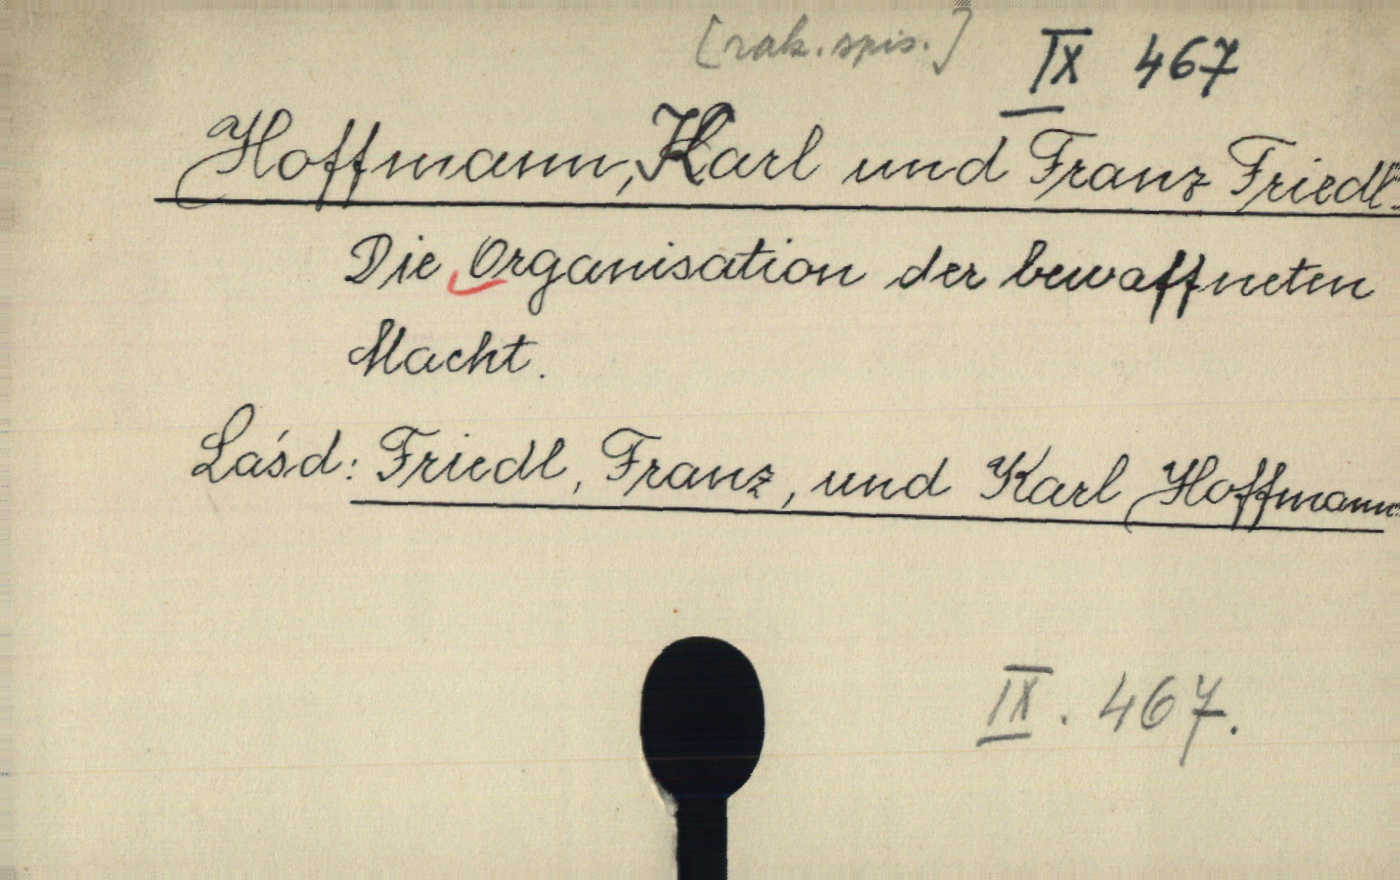 [rak. spis.] IX 467
Hoffmann, Karl und Franz Friedl:
Die Organisation der bewaffneten
Macht.
Lásd: Friedl, Franz, und Karl Hoffmann
IX. 467.